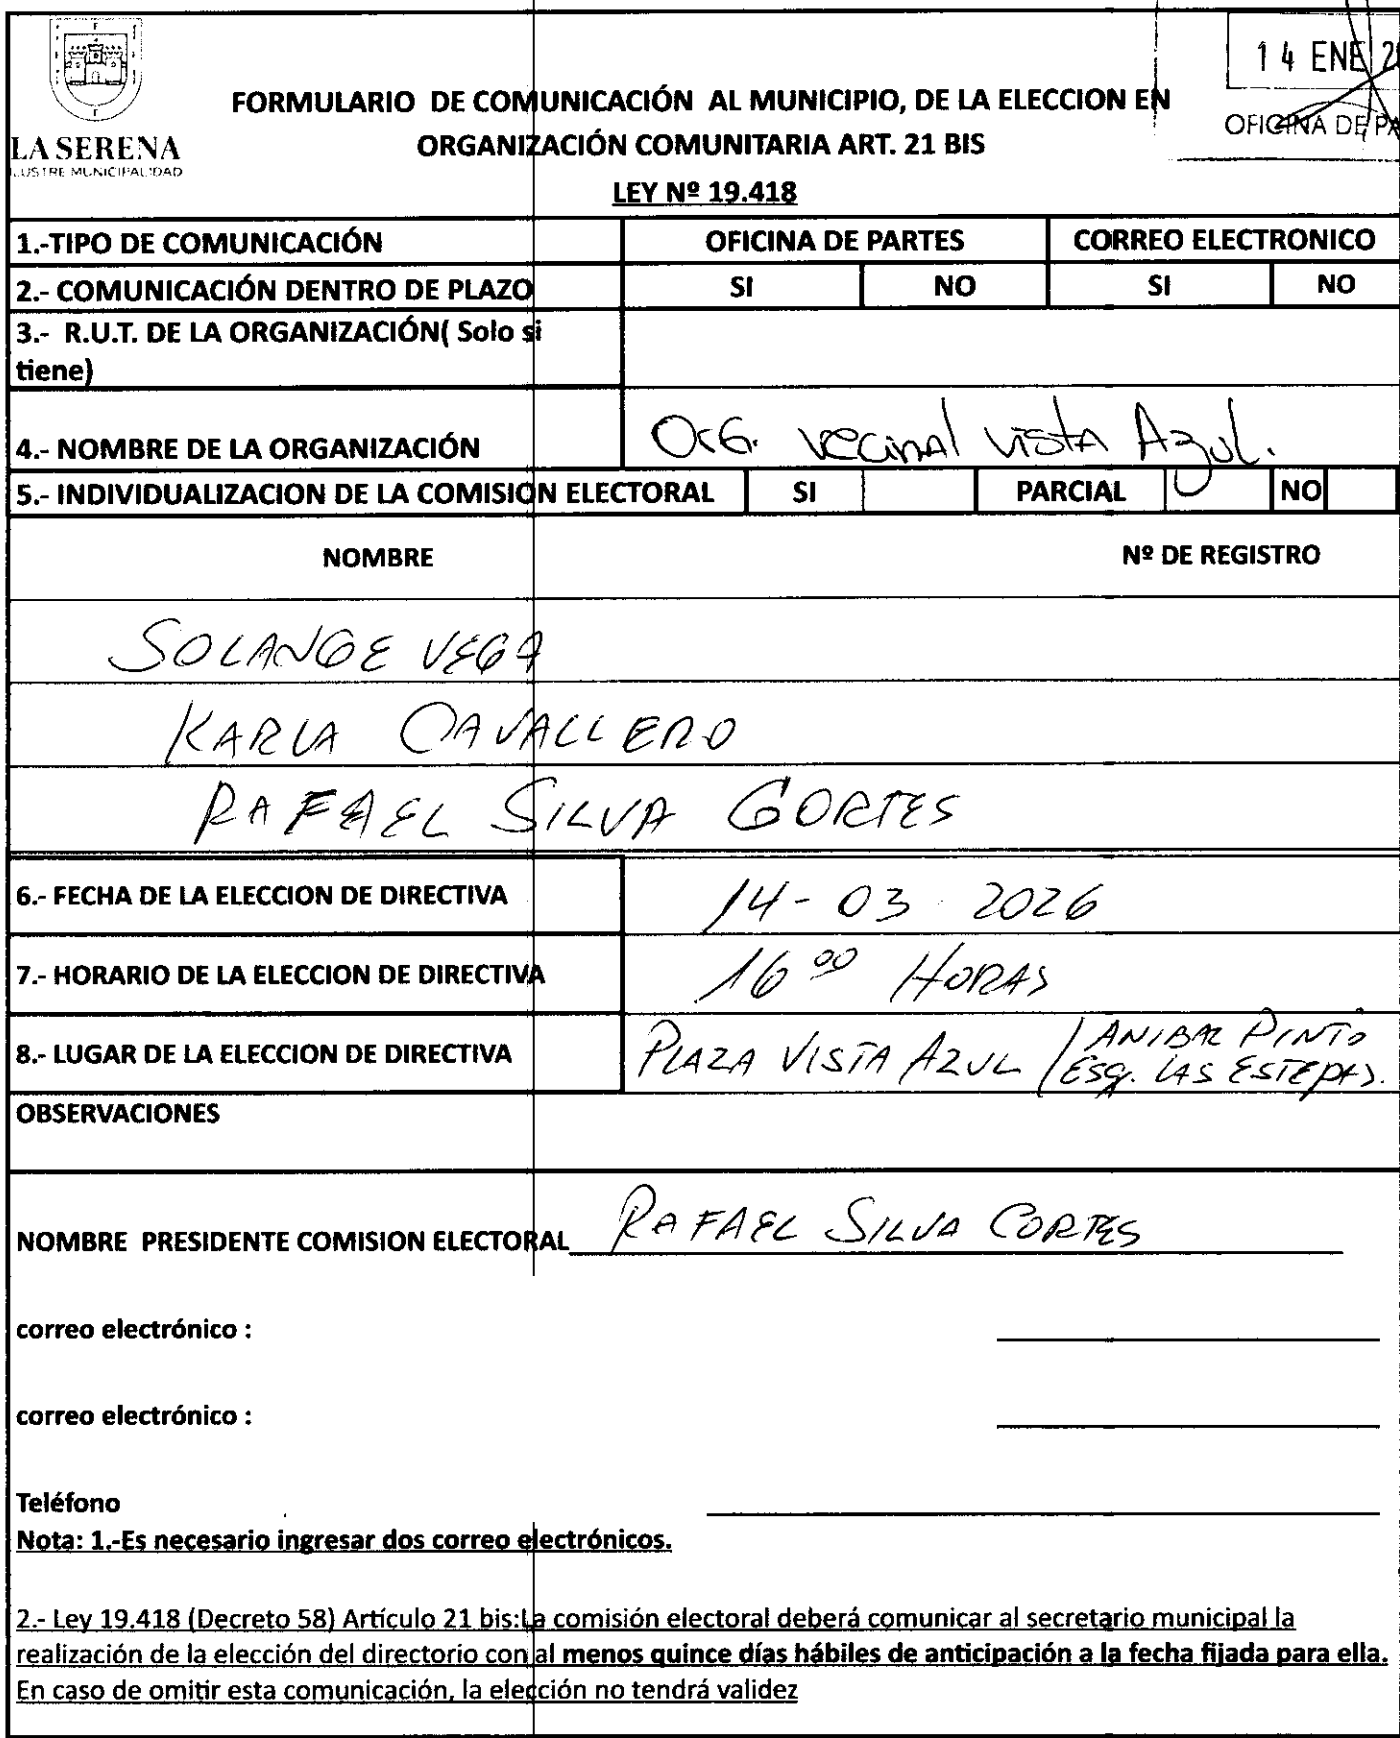 14 ENE 2
OFICINA DE PA
LA SERENA
ILUSTRE MUNICIPALIDAD
FORMULARIO DE COMUNICACIÓN AL MUNICIPIO, DE LA ELECCION EN
ORGANIZACIÓN COMUNITARIA ART. 21 BIS
LEY Nº 19.418
1.-TIPO DE COMUNICACIÓN OFICINA DE PARTES CORREO ELECTRONICO
2.- COMUNICACIÓN DENTRO DE PLAZO SI NO SI NO
3.- R.U.T. DE LA ORGANIZACIÓN( Solo si
tiene)
4.- NOMBRE DE LA ORGANIZACIÓN OrG. vecinal vista Azul.
5.- INDIVIDUALIZACION DE LA COMISION ELECTORAL SI PARCIAL NO
NOMBRE Nº DE REGISTRO
SOLANGE VEGA
KARLA CAVALLERO
RAFAEL SILVA CORTES
6.- FECHA DE LA ELECCION DE DIRECTIVA 14-03-2026
7.- HORARIO DE LA ELECCION DE DIRECTIVA 16 00 HORAS
8.- LUGAR DE LA ELECCION DE DIRECTIVA PLAZA VISTA AZUL / ANIBAL PINTO
ESQ. LAS ESTEPAS.
OBSERVACIONES
NOMBRE PRESIDENTE COMISION ELECTORAL RAFAEL SILVA CORTES
correo electrónico :
correo electrónico :
Teléfono
Nota: 1.-Es necesario ingresar dos correo electrónicos.
2.- Ley 19.418 (Decreto 58) Artículo 21 bis:La comisión electoral deberá comunicar al secretario municipal la
realización de la elección del directorio con al menos quince días hábiles de anticipación a la fecha fijada para ella.
En caso de omitir esta comunicación, la elección no tendrá validez